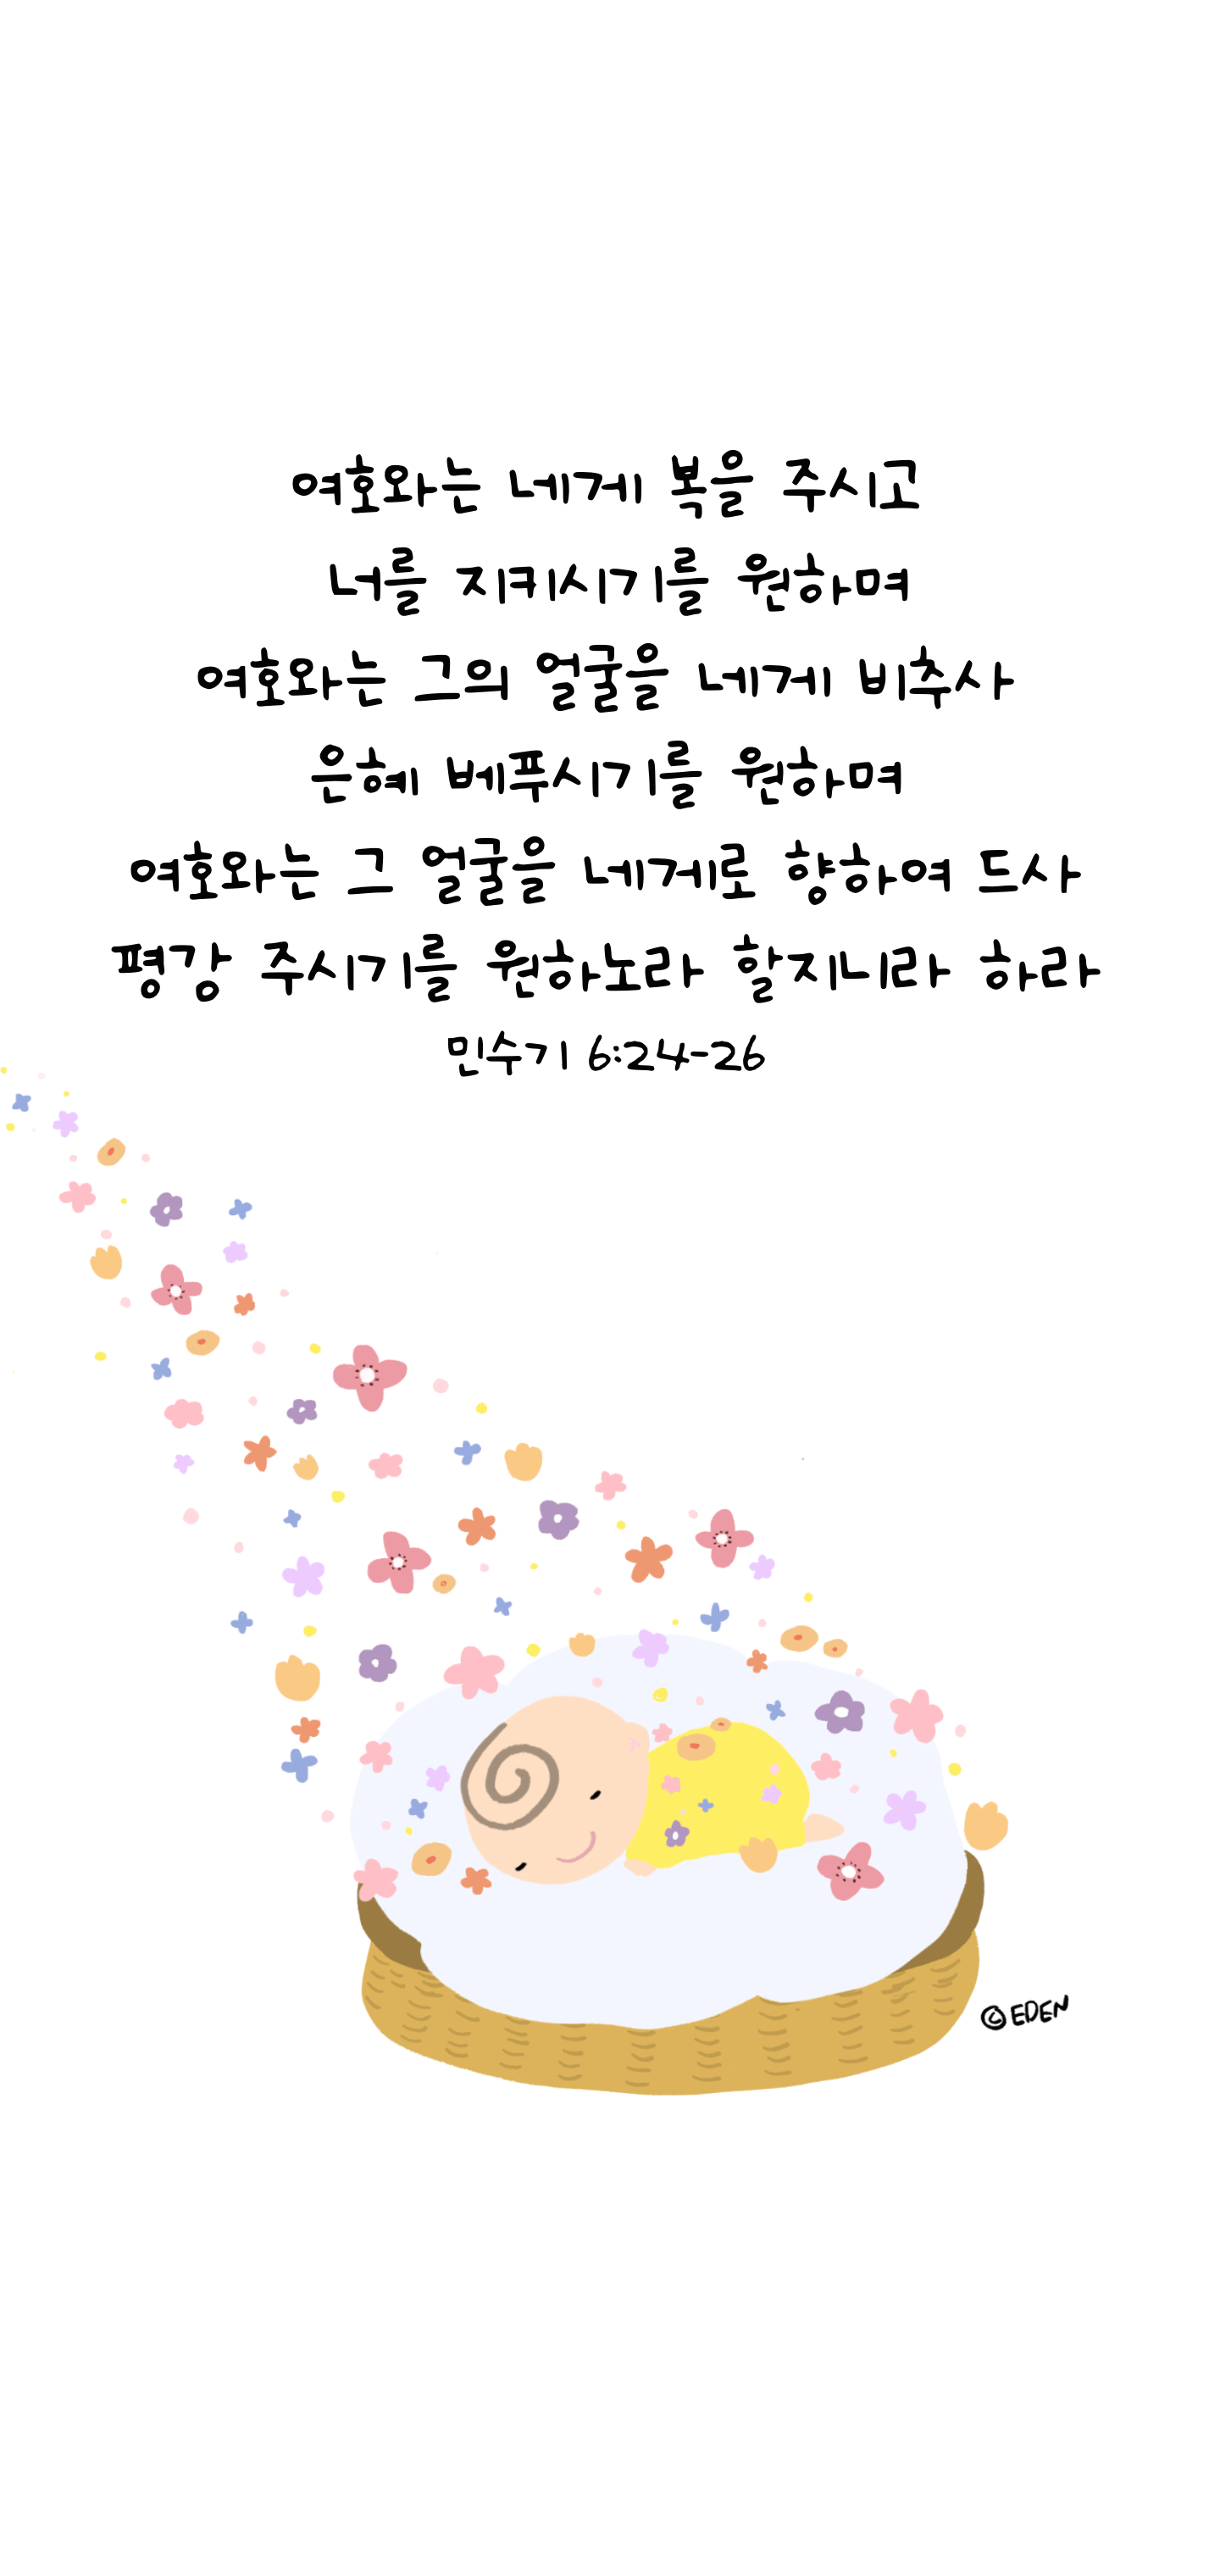 여호와는 네게 복을 주시고
너를 지키시기를 원하며
여호와는 그의 얼굴을 네게 비추사
은혜 베푸시기를 원하며
여호와는 그 얼굴을 네게로 향하여 드사
평강 주시기를 원하노라 할지니라 하라
민수기 6:24-26
©EDEN